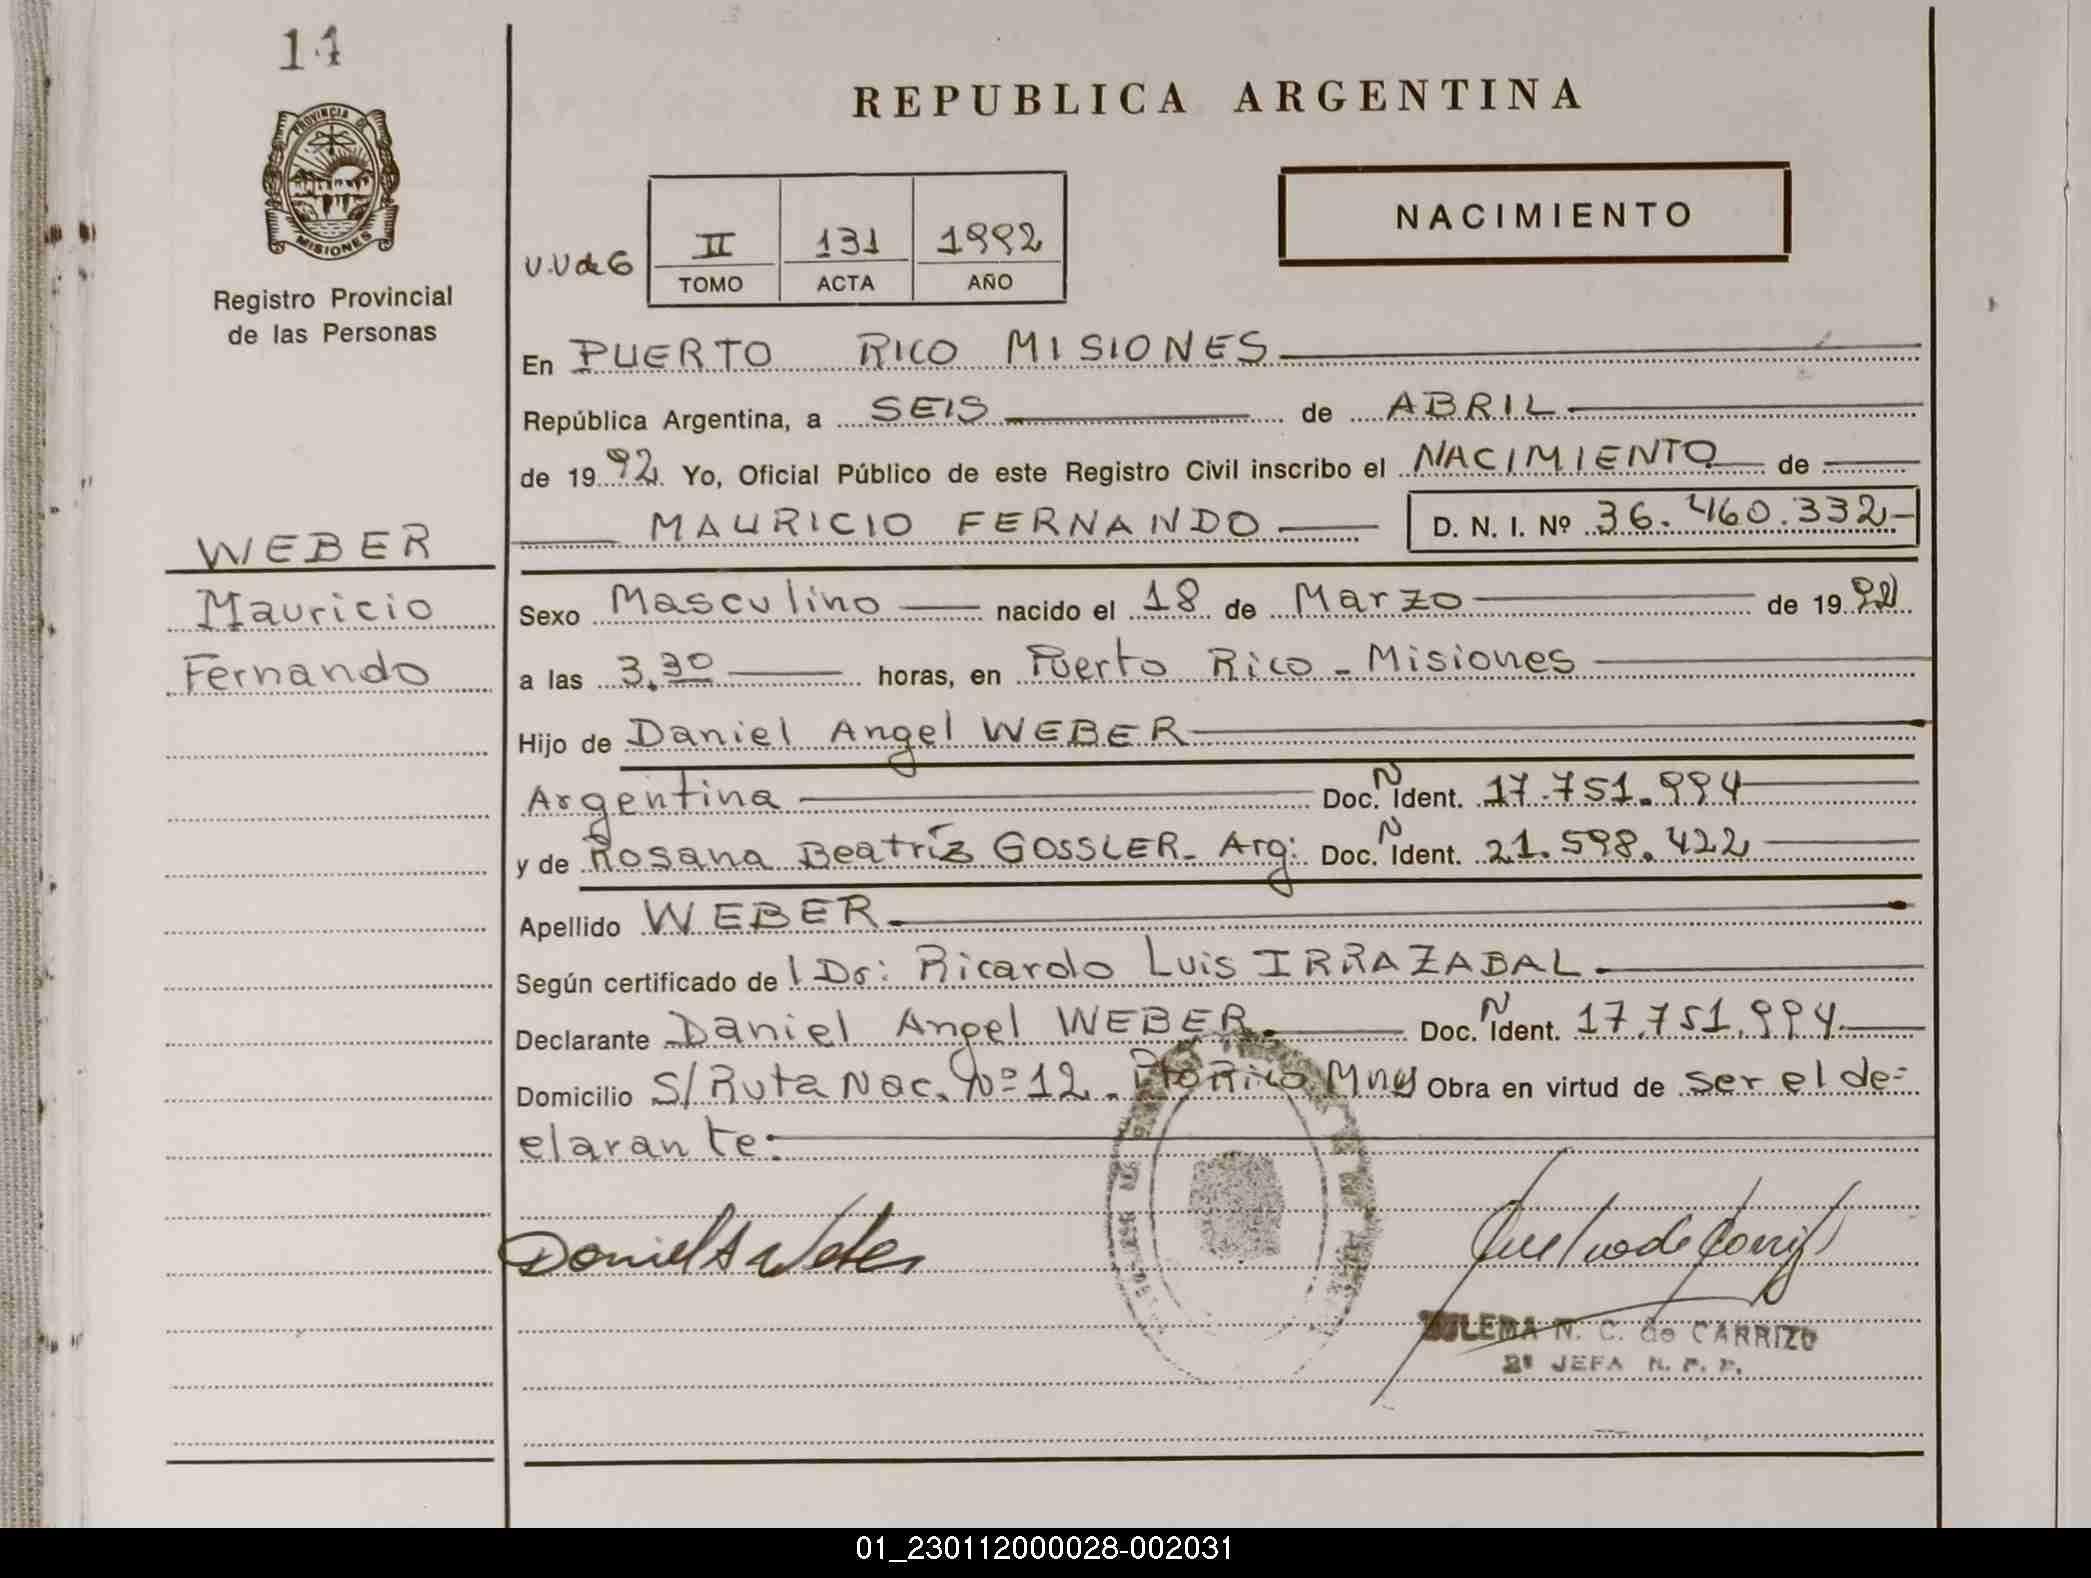 14
PROVINCIA DE
MISIONES
Registro Provincial
de las Personas
REPUBLICA ARGENTINA
NACIMIENTO
U.U de G
II 131 1992
TOMO ACTA AÑO
En PUERTO RICO MISIONES
República Argentina, a SEIS de ABRIL
de 1992 Yo, Oficial Público de este Registro Civil inscribo el NACIMIENTO de
MAURICIO FERNANDO D. N. I. Nº 36.460.332
WEBER
Mauricio
Fernando
Sexo Masculino nacido el 18 de Marzo de 1992
a las 3.30 horas, en Puerto Rico - Misiones
Hijo de Daniel Angel WEBER
Argentina Doc. N Ident. 17.751.994
y de Rosana Beatríz GOSSLER - Arg: Doc. N Ident. 21.598.422
Apellido WEBER
Según certificado de l Dr: Ricardo Luis IRRAZABAL
Declarante Daniel Angel WEBER Doc. N Ident. 17.751.994
Domicilio S/ Ruta Nac. Nº 12. Pto Rico Mnes Obra en virtud de ser el de-
clarante:
Daniel A Weber
N. C. de CARRIZO
2º JEFA R. P. P.
01_230112000028-002031